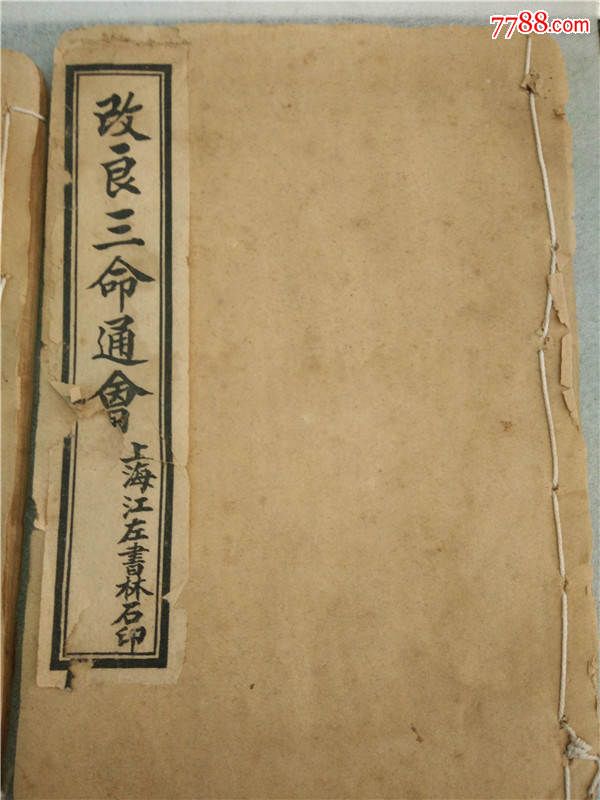 7788.com
改良三命通會
上海江左書林石印